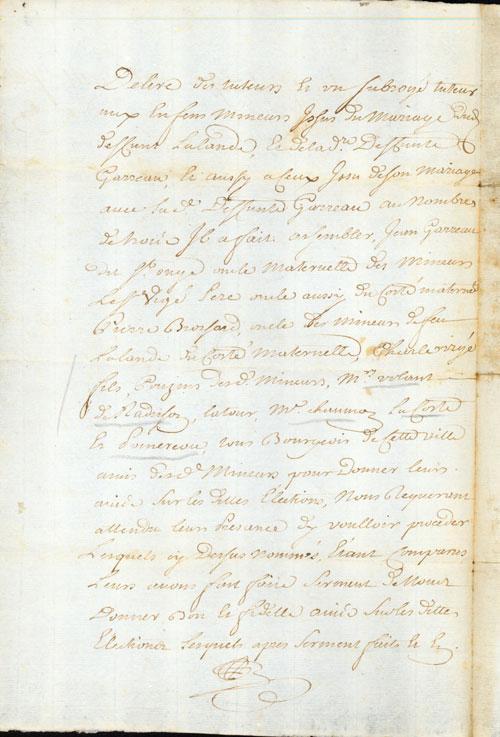 Delire des tuteurs et un subrogé tuteur
aux Enfens Mineurs Issus du Mariage dud
deffunt Lalande, et de la de. Deffunte
Garreau, et aussy a ceux Issu de son Mariage
avec lad. Deffunte Garreau au Nombre
de trois Il a fait assembler, Jean Garreau
dit St. onge oncle Maternelle des Mineurs
Le Sr. Vigé Pere oncle aussy du Corté maternel
Pierre Brossard, oncle des mineurs de feu
Lalande du Corté Maternelle, Charle vizé
fils Cousins desd. Mineurs, Mrs. volant
de Radisson, latour, Mr. chaumon La Corte
et Poinereau, tous Bourgeois de Cette ville
amis desd. Mineurs pour Donner leurs
avice Sur les dittes Elections, Nous Requerant
attendu leur Presance dy voulloir proceder
Lesquels cy Dessus nommés, Etant Comparus
Leurs avons fait faire Serment de
Donner bon et fidelle avice Sur les dittes
Elections Lesquels apres Serment faits et